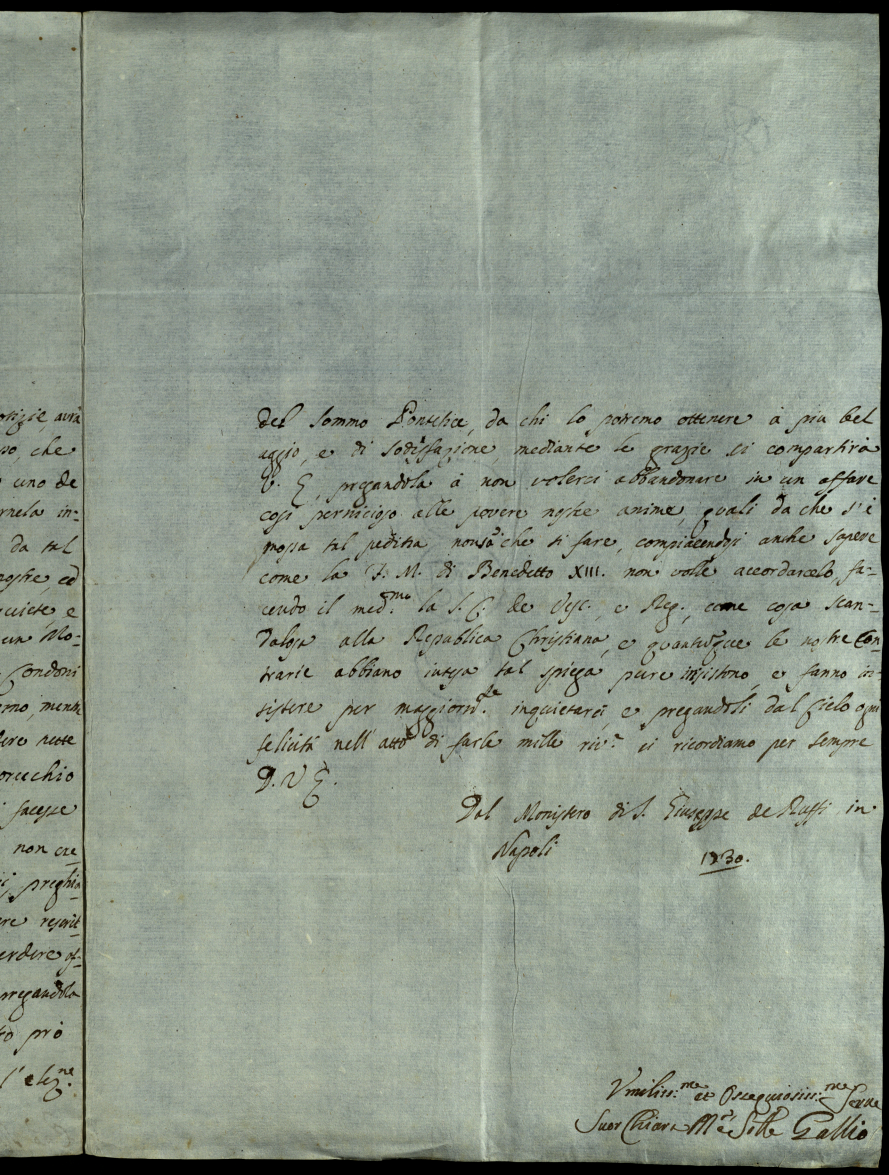 otizie avrà
so, che
uno de
rnela in=
da tal
ed
quiete, e
un Mo=
Condoni
mentre
dere
orecchio
facesse
non cre=
preghia
ere rescrit=
perdere of=
pregandola
to prò
l'elez.ne
del Sommo Pontefice, da chi lo potremo ottenere à piu bel
aggio, e di sodisfazione, mediante le grazie ci compartirà
V. E, pregandola à non volerci abbandonare in un affare
così pernicioso alle povere nostre anime, quali da che s'è
mossa tal pedina, non sà che si fare, compiacendosi anche sapere
come la F. M. di Benedetto XIII. non volle accordarcelo, fa=
cendo il med.mo la S. C. de Vesc. e Reg., come cosa scan=
dalosa alla Republica Christiana, e quantunque le nostre con
trarie abbiano intesa tal spiega pure insistono, e fanno in=
sistere per maggiorm.te inquietarci, e pregandoli dal Cielo ogni
felicità nell'atto di farle mille riv.e ci ricordiamo per sempre
D. V. E.
Dal Monistero di S. Giuseppe de Ruffi in
Napoli 1730.
Umiliss:me et Ossequiosiss:me Serve
Suor Chiara M.a Gallio